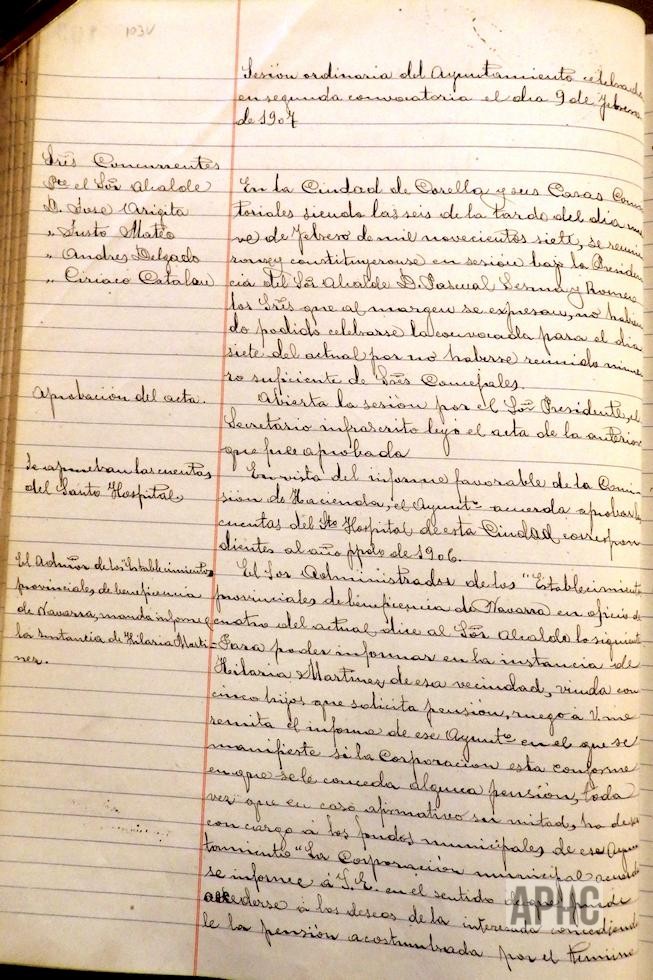 103V
Sesión ordinaria del Ayuntamiento celebrada
en segunda convocatoria el dia 9 de Febrero
de 1907
Sres Concurrentes
Pte el Sor Alcalde
D. Jose Arigita
" Justo Mateo
" Andres Delgado
" Ciriaco Catalan
En la Ciudad de Corella y sus Casas Consis
toriales siendo las seis de la tarde del dia nue
ve de Febrero de mil novecientos siete, se reunie
ron y constituyeronse en sesión bajo la Presiden
cia del Sor Alcalde D. Pascual Sesma y Romero
los Sres que al margen se expresan, no habien
do podido celebrarse la convocada para el dia
siete del actual por no haberse reunido nume
ro suficiente de Sres Concejales.
Aprobación del acta.
Abierta la sesión por el Sor Presidente, el
Secretario infrascrito leyó el acta de la anterior
que fue aprobada
Se aprueban las cuentas
del Santo Hospital
En vista del informe favorable de la Comi
sión de Hacienda, el Ayuntº acuerda aprobar las
cuentas del Sto Hospital de esta Ciudad correspon
dientes al año ppdo de 1906.
El Admor de los Establecimientos
provinciales de beneficencia
de Navarra, manda informe
la instancia de Hilaria Marti-
nez.
El Sor Administrador de los "Establecimientos
provinciales de beneficencia de Navarra en oficio de
cuatro del actual dice al Sor Alcalde lo siguiente
Para poder informar en la instancia de
Hilaria Martinez, de esa vecindad, viuda con
cinco hijos que solicita pensión, ruego á V. me
remita el informe de ese Ayuntº en el que se
manifieste si la Corporación esta conforme
en que se le conceda alguna pensión, toda
vez que en caso afirmativo su mitad, ha de ser
con cargo á los fondos municipales de ese Ayun
tamiento" La Corporación municipal acuerda
se informe á S.E. en el sentido de que puede
accederse á los deseos de la interesada concediendo
le la pensión acostumbrada por el termino
APHC